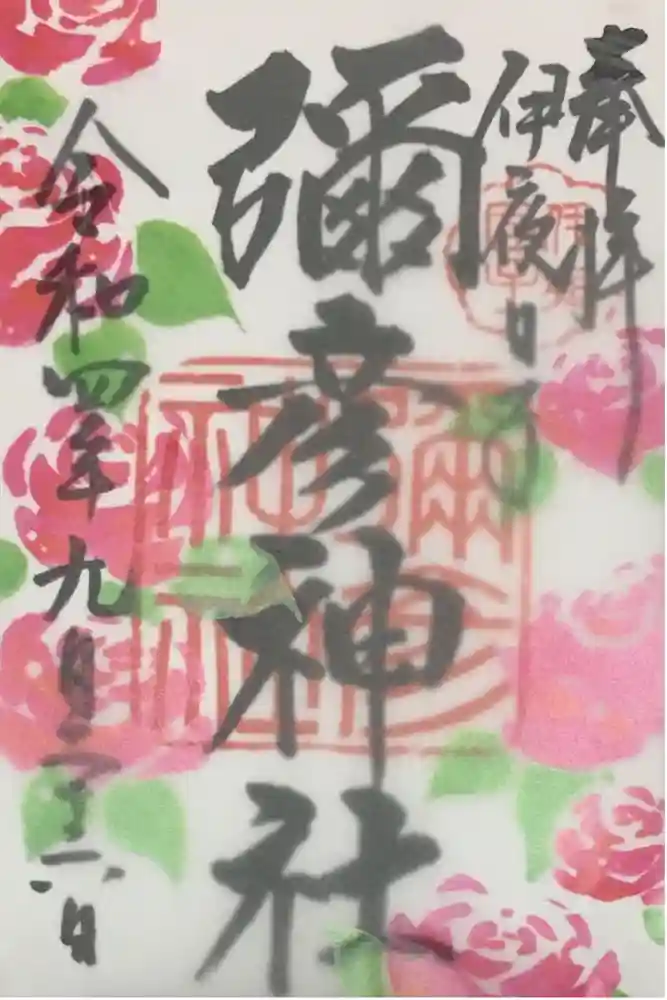 奉拝
伊夜日子
彌彦神社
令和四年九月二十六日